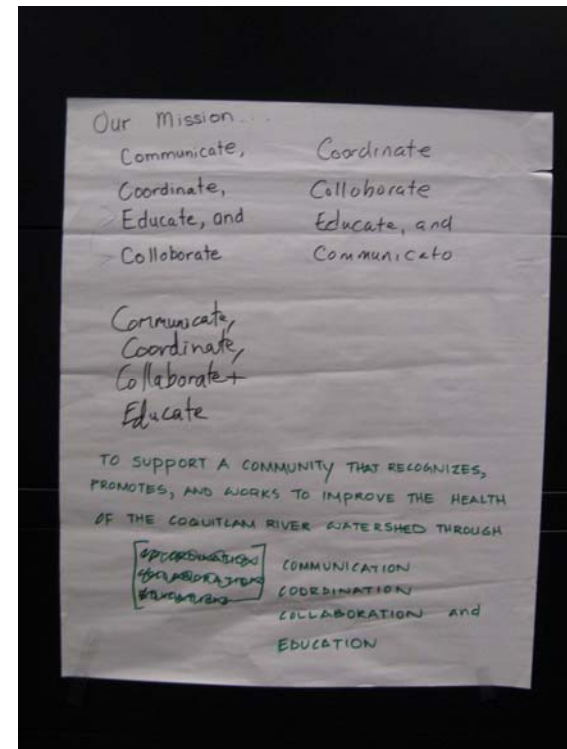 Our Mission...
Communicate,
Coordinate,
> Educate, and
> Colloborate
Coordinate
Colloborate
Educate, and
Communicate
Communicate,
Coordinate,
Collaborate +
Educate
TO SUPPORT A COMMUNITY THAT RECOGNIZES,
PROMOTES, AND WORKS TO IMPROVE THE HEALTH
OF THE COQUITLAM RIVER WATERSHED THROUGH
COMMUNICATION
COORDINATION
COLLABORATION and
EDUCATION